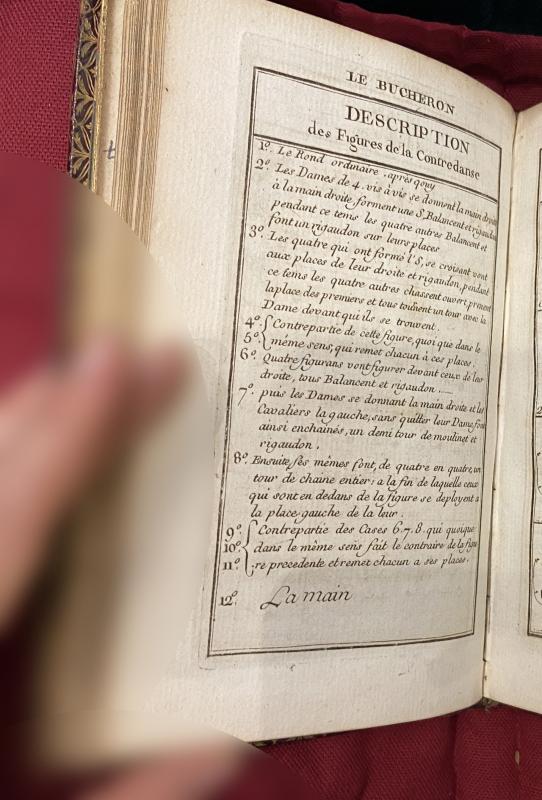 LE BUCHERON
DESCRIPTION
des Figures de la Contredanse
1º. Le Rond ordinaire. après quoy
2º. Les Dames de 4. vis à vis se donnent la main droite
à la main droite, forment une S, Balancent et rigaudon
pendant ce tems les quatre autres Balancent et
font un rigaudon sur leurs places
3º. Les quatre qui ont formé l'S, se croisant vont
aux places de leur droite et rigaudon, pendant
ce tems les quatre autres chassent ouvert, prennent
la place des premiers et tous tournent un tour avec la
Dame devant qui ils se trouvent.
4º. Contrepartie de cette figure, quoi que dans le
5º. même sens, qui remet chacun à ces places.
6º. Quatre figurans vont figurer devant ceux de leur
droite, tous Balancent et rigaudon.
7º. puis les Dames se donnant la main droite et les
Cavaliers la gauche, sans quitter leur Dame, font
ainsi enchainés, un demi tour de moulinet et
rigaudon.
8º. Ensuite, ses mêmes font, de quatre en quatre, un
tour de chaine entier: a la fin de laquelle ceux
qui sont en dedans de la figure se deployent a
la place gauche de la leur.
9º. Contrepartie des Cases 6. 7. 8. qui quoique
10º. dans le même sens fait le contraire de la figu
11º. re precedente et remet chacun a ses places.
12º. La main